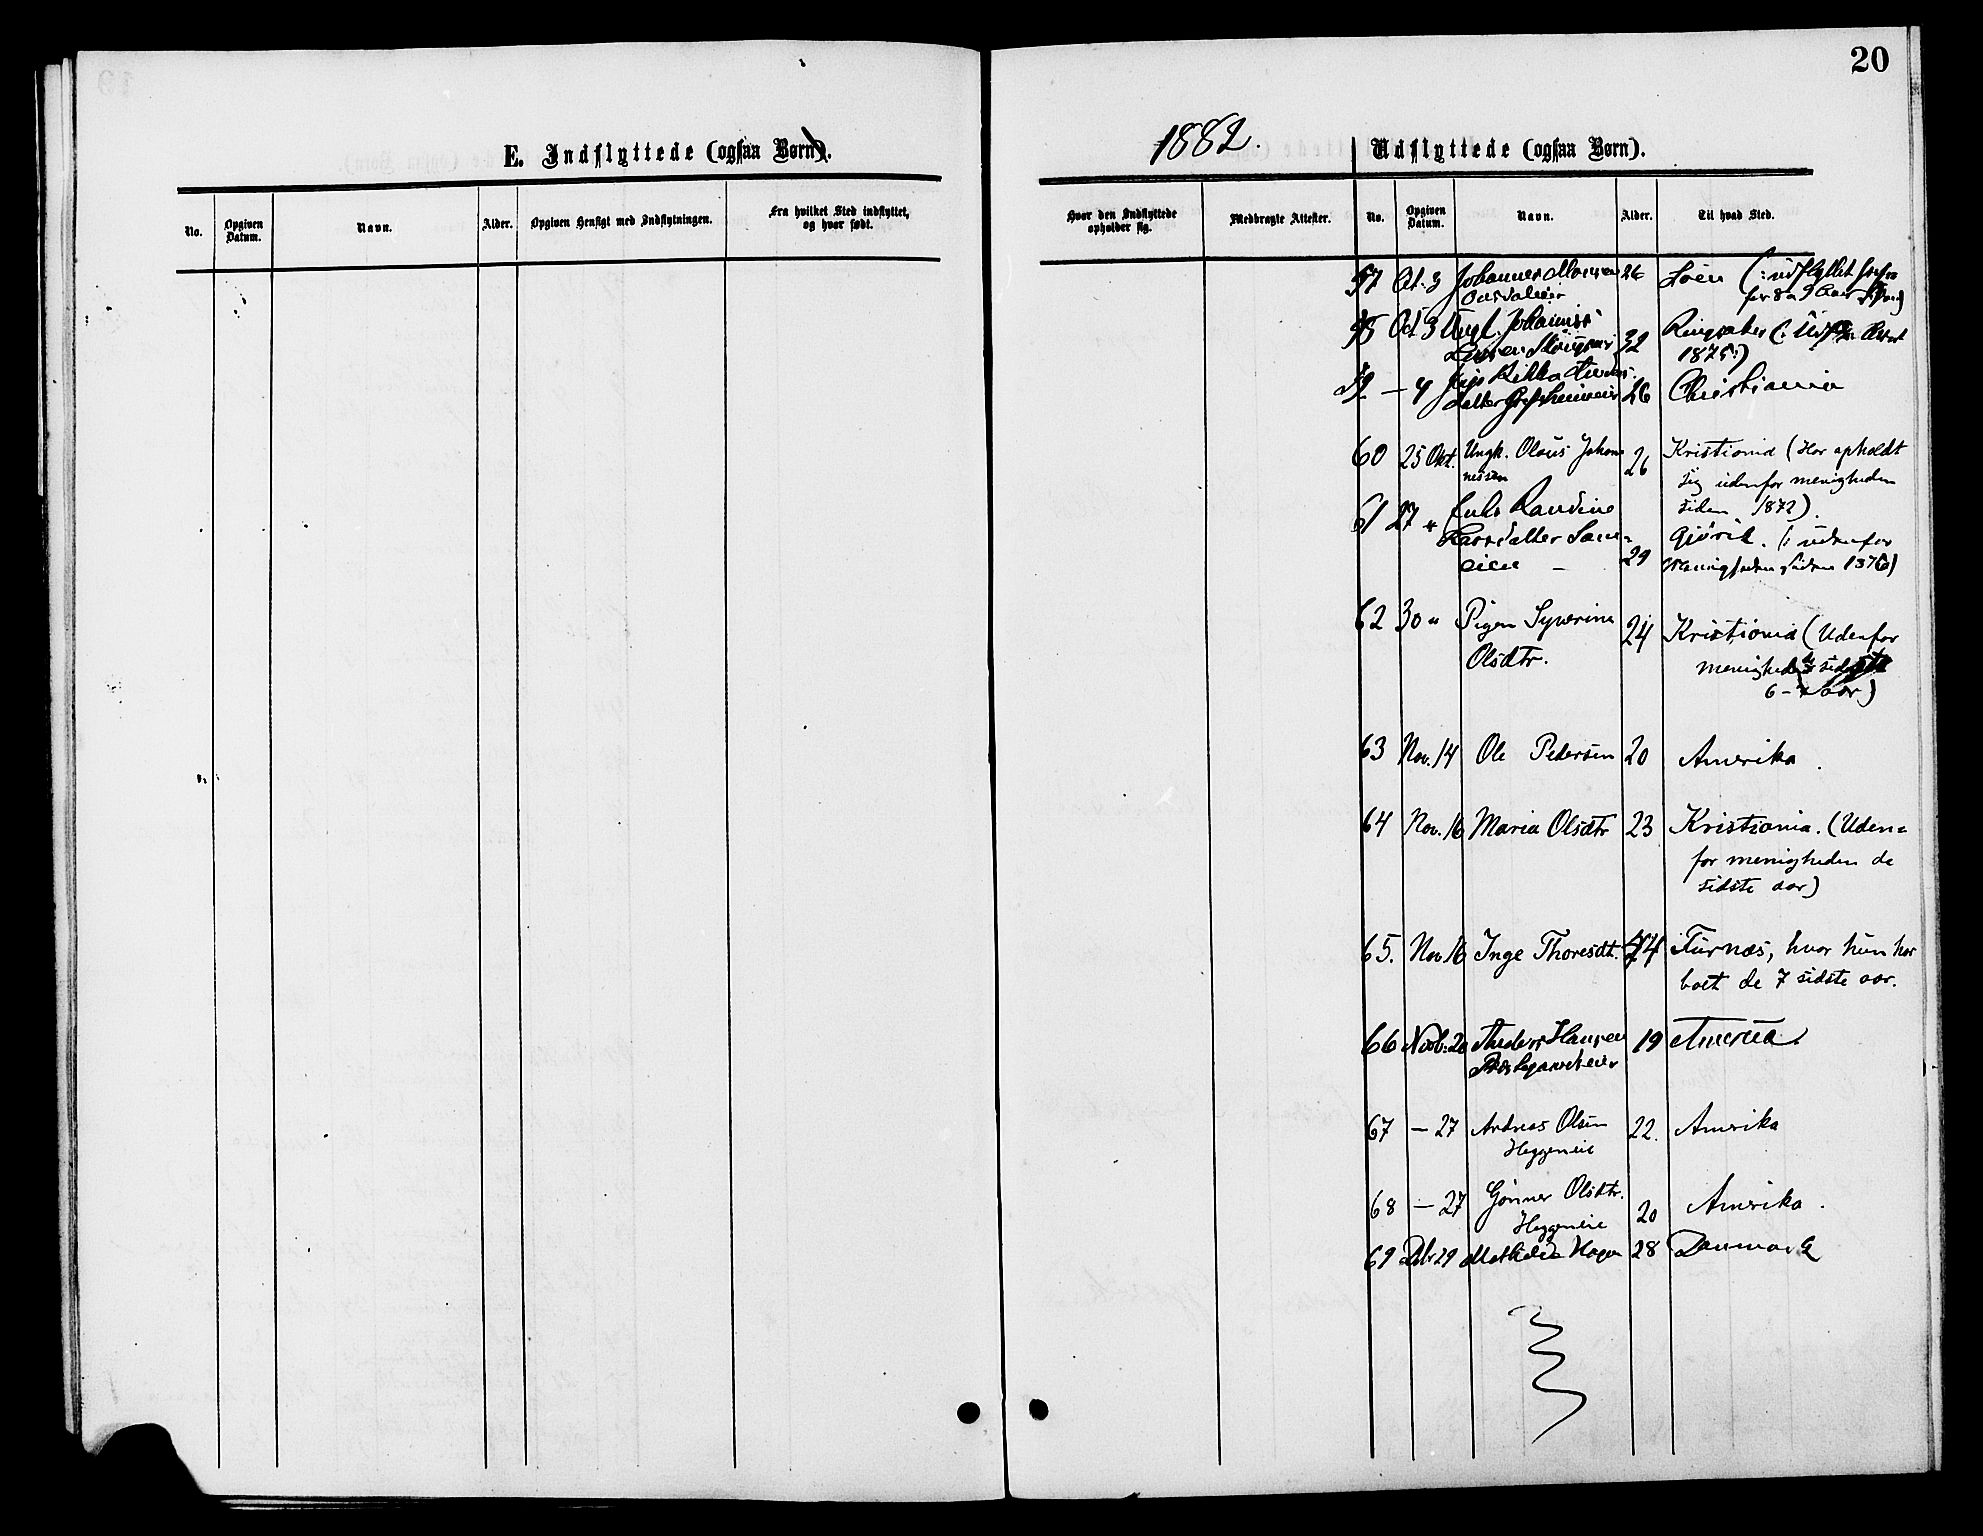 20
E. Indflyttede (ogsaa Børn).
1882.
Udflyttede (ogsaa Børn).
No.
Opgiven Datum.
Navn.
Alder.
Opgiven Hensigt med Indflytningen.
Fra hvilket Sted indflyttet,
og hvor født.
Hvor den Indflyttede
opholder sig.
Medbragte Attester.
No.
Opgiven Datum.
Navn.
Alder.
Til hvad Sted.
57 Oct. 3 Johannes 26
for 8 a 9 Aar
58 Oct 3 Ungk. Johannes
32 Ringsaker
1875)
59 — 4 Pige
26 Christiania
60 25 Okt. Ungk. Olaus Johan 26 Kristiania (Har opholdt
nessen sig udenfor menigheden
siden 1872).
61 27 " Enke Randine
Gjøvik. (: udenfor
eien — 29 Menigheden siden 1876)
62 30 " Pigen Syverine 24 Kristiania (Udenfor
Olsdtr. menigheden
6 - aar)
63 Nov. 14 Ole Pedersen 20 Amerika.
64 Nov. 16 Maria Olsdtr 23 Kristiania. (Uden=
for menigheden de
sidste aar)
65. Nov 16 Inge Thoresdt. 74 Furnæs, hvor hun har
boet de 7 sidste aar.
66 Novb: 20 Hansen 19 America.
67 — 27 Andreas Olsen 22. Amerika
Heggeneie
68 — 27 Gunner Olsdtr. 20 Amerika.
Heggeneie
69 Dcbr 29 Mathilde Hagen 28 Danmark